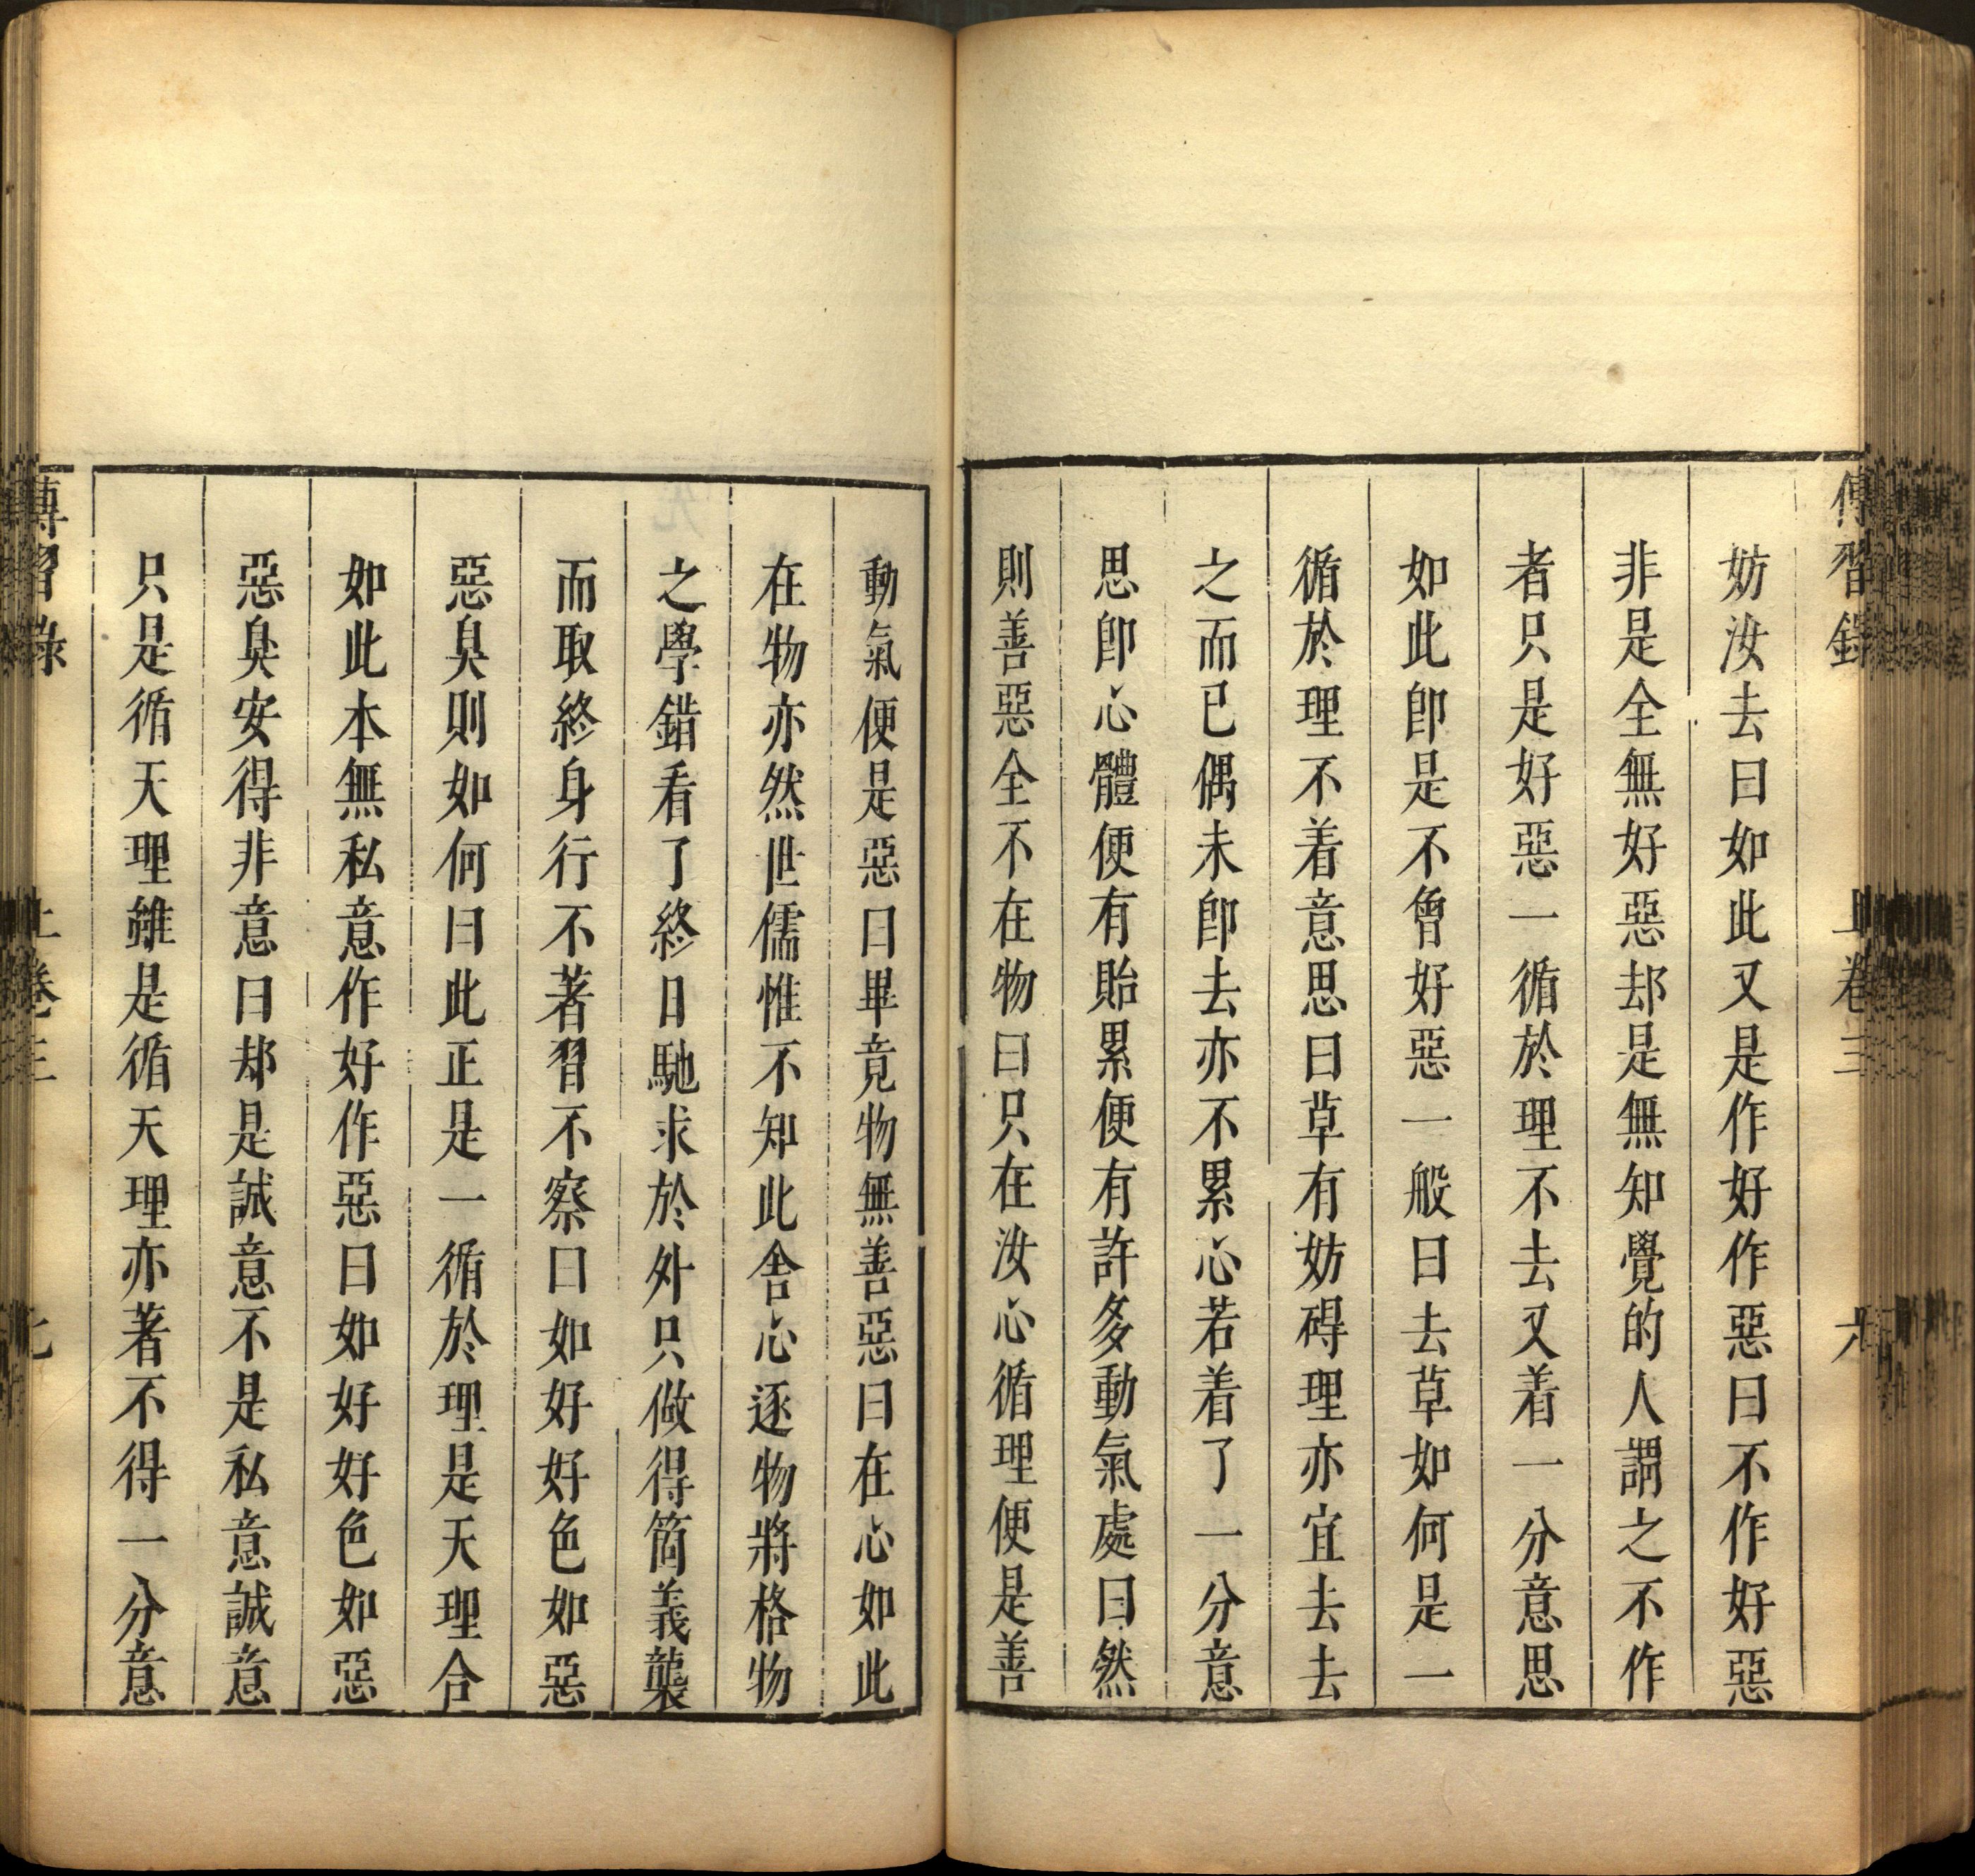 傳習錄 上卷三 六
妨汝去曰如此又是作好作惡曰不作好惡
非是全無好惡却是無知覺的人謂之不作
者只是好惡一循於理不去又着一分意思
如此卽是不曾好惡一般曰去草如何是一
循於理不着意思曰草有妨碍理亦宜去去
之而已偶未卽去亦不累心若着了一分意
思卽心體便有貽累便有許多動氣處曰然
則善惡全不在物曰只在汝心循理便是善
動氣便是惡曰畢竟物無善惡曰在心如此
在物亦然世儒惟不知此舍心逐物將格物
之學錯看了終日馳求於外只做得箇義襲
而取終身行不著習不察曰如好好色如惡
惡臭則如何曰此正是一循於理是天理合
如此本無私意作好作惡曰如好好色如惡
惡臭安得非意曰却是誠意不是私意誠意
只是循天理雖是循天理亦著不得一分意
傳習錄 上卷三 七